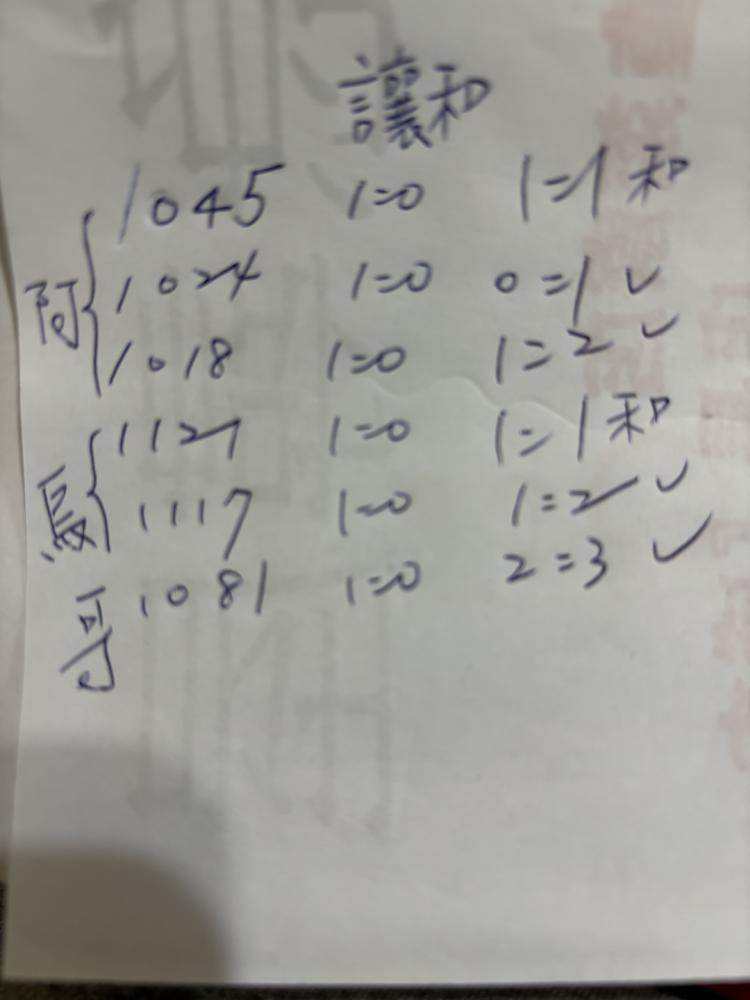 讓和
阿
1045 1=0 1=1 和
1024 1=0 0=1 ✓
1018 1=0 1=2 ✓
1127 1=0 1=1 和
1117 1=0 1=2 ✓
哥 1081 1=0 2=3 ✓